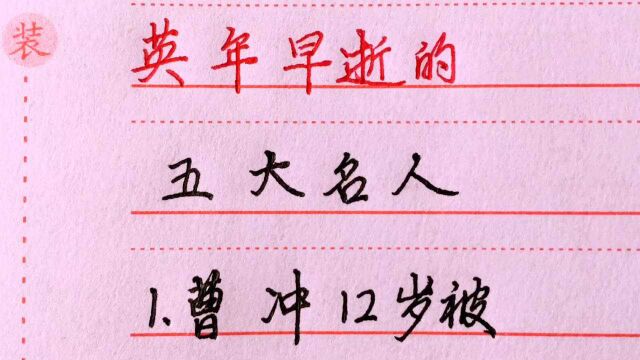 装
英年早逝的
五大名人
1.曹冲12岁被